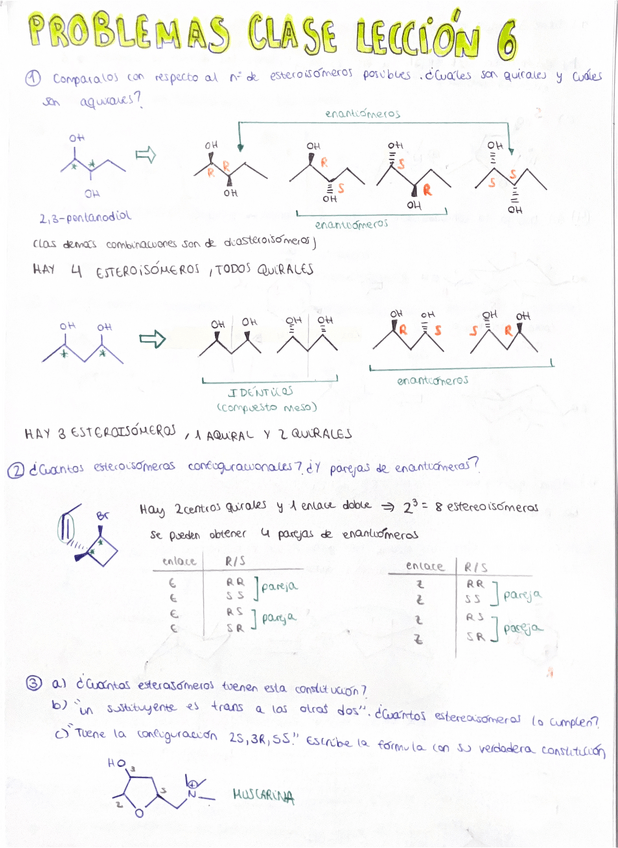 PROBLEMAS CLASE LECCIÓN 6
① Comparalos con respecto al nº de esteroisómeros posibles. ¿Cuáles son quirales y cuáles
son aquirales?
enantiómeros
OH OH OH OH OH
R R R S S R S S
OH OH OH OH OH
2,3-pentanodiol
enantiómeros
(las demás combinaciones son de diasteroisómeros)
HAY 4 ESTEROISÓMEROS, TODOS QUIRALES
OH OH OH OH OH OH OH OH OH OH
R S S R
IDÉNTICOS
(compuesto meso)
enantiómeros
HAY 3 ESTEROISÓMEROS, 1 AQUIRAL Y 2 QUIRALES
② ¿Cuántos esteroisómeros configuracionales? ¿Y parejas de enantiómeros?
Br
Hay 2 centros quirales y 1 enlace doble ⇒ 2³ = 8 estereoisómeros
Se pueden obtener 4 parejas de enantiómeros
enlace R/S
E RR
E SS
pareja
E RS
E SR
pareja
enlace R/S
Z RR
Z SS
pareja
Z RS
Z SR
pareja
③ a) ¿Cuántos esteroisómeros tienen esta constitución?
b) "un sustituyente es trans a los otros dos". ¿Cuántos estereoisomeros lo cumplen?
c) "Tiene la configuración 2S, 3R, 5S." Escribe la fórmula con su verdadera constitución
HO 3
2 O 5 N +
MUSCARINA